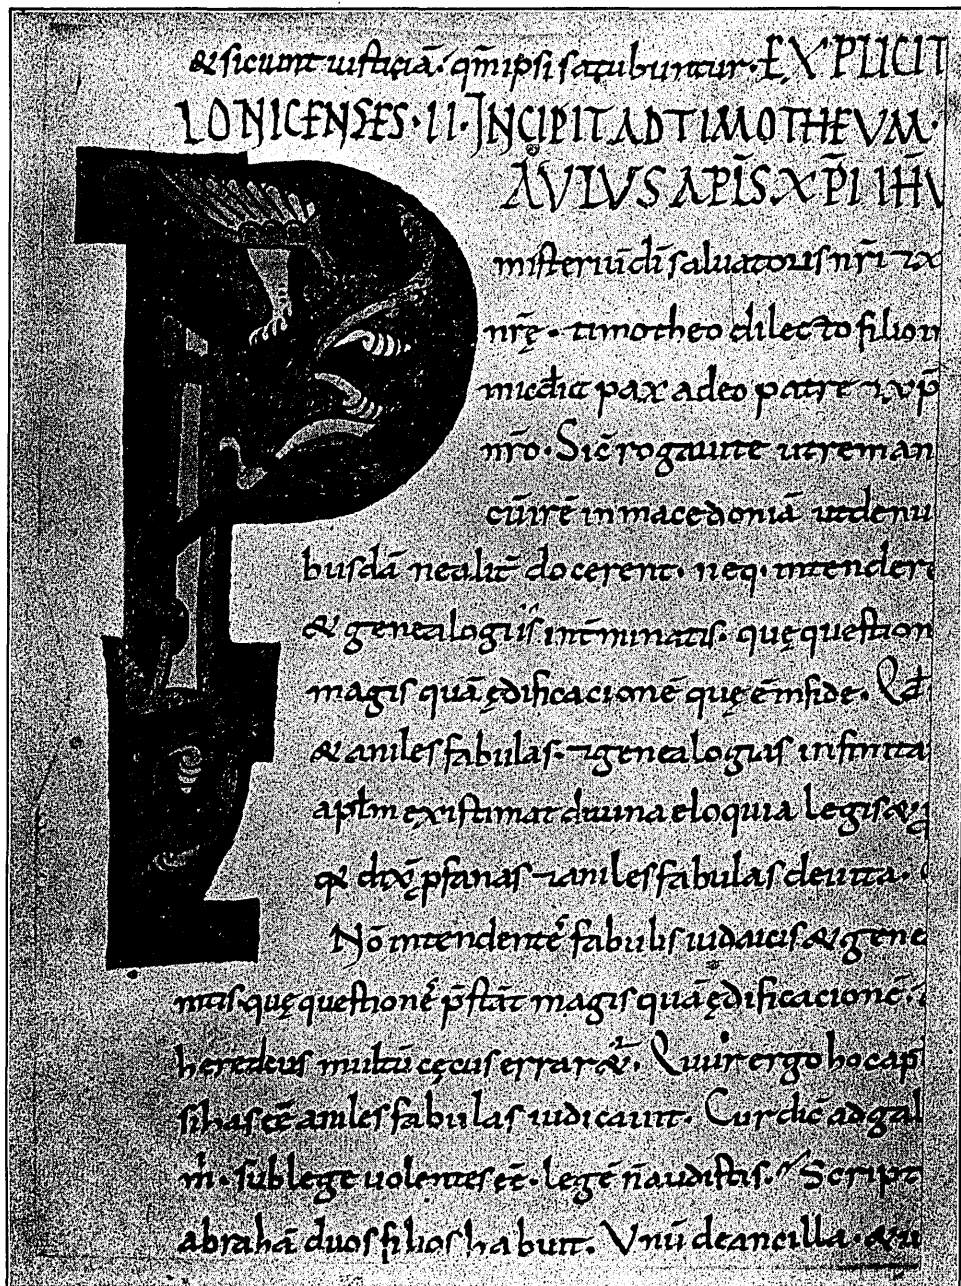 & siciunt iusticiā. qm̄ ipsi saturabuntur. EXPLICIT
LONICENSES. II. INCIPIT AD TIMOTHEVM.
PAVLVS APL̄S. XP̄I IHV
misteriū dī saluatoris nr̄i ⁊ x
nrę̄. timotheo dilecto filio n
mīcdīa pax a deo patre ⁊ xp̄
nr̄o. Sic̄ rogaui te ut reman
cū irē in macedoniā ut denu
busdā ne alit̄ docerent. neq. intender
& genealogiis int̄minatis. quę question
magis quā ędificacionē quę ē in fide. Qđ
& aniles fabulas. ⁊ genealogias infinita
apłm existimat diuina eloquia legis &
dix̄ p̄fanas ⁊ aniles fabulas deuita.
Nō intendentē fabulis iudaicis & gene
natis. quę questionē p̄stāt magis quā ędificacionē.
hereticus multū cęcus errar&. Quur ergo hoc ap
si has ēē aniles fabulas iudicauit. Cur dic̄ ad gal
m̄. sub lege uolentes ēē. legē n̄ audistis. Script
abrahā duos filios habuit. Vnū de ancilla. & u